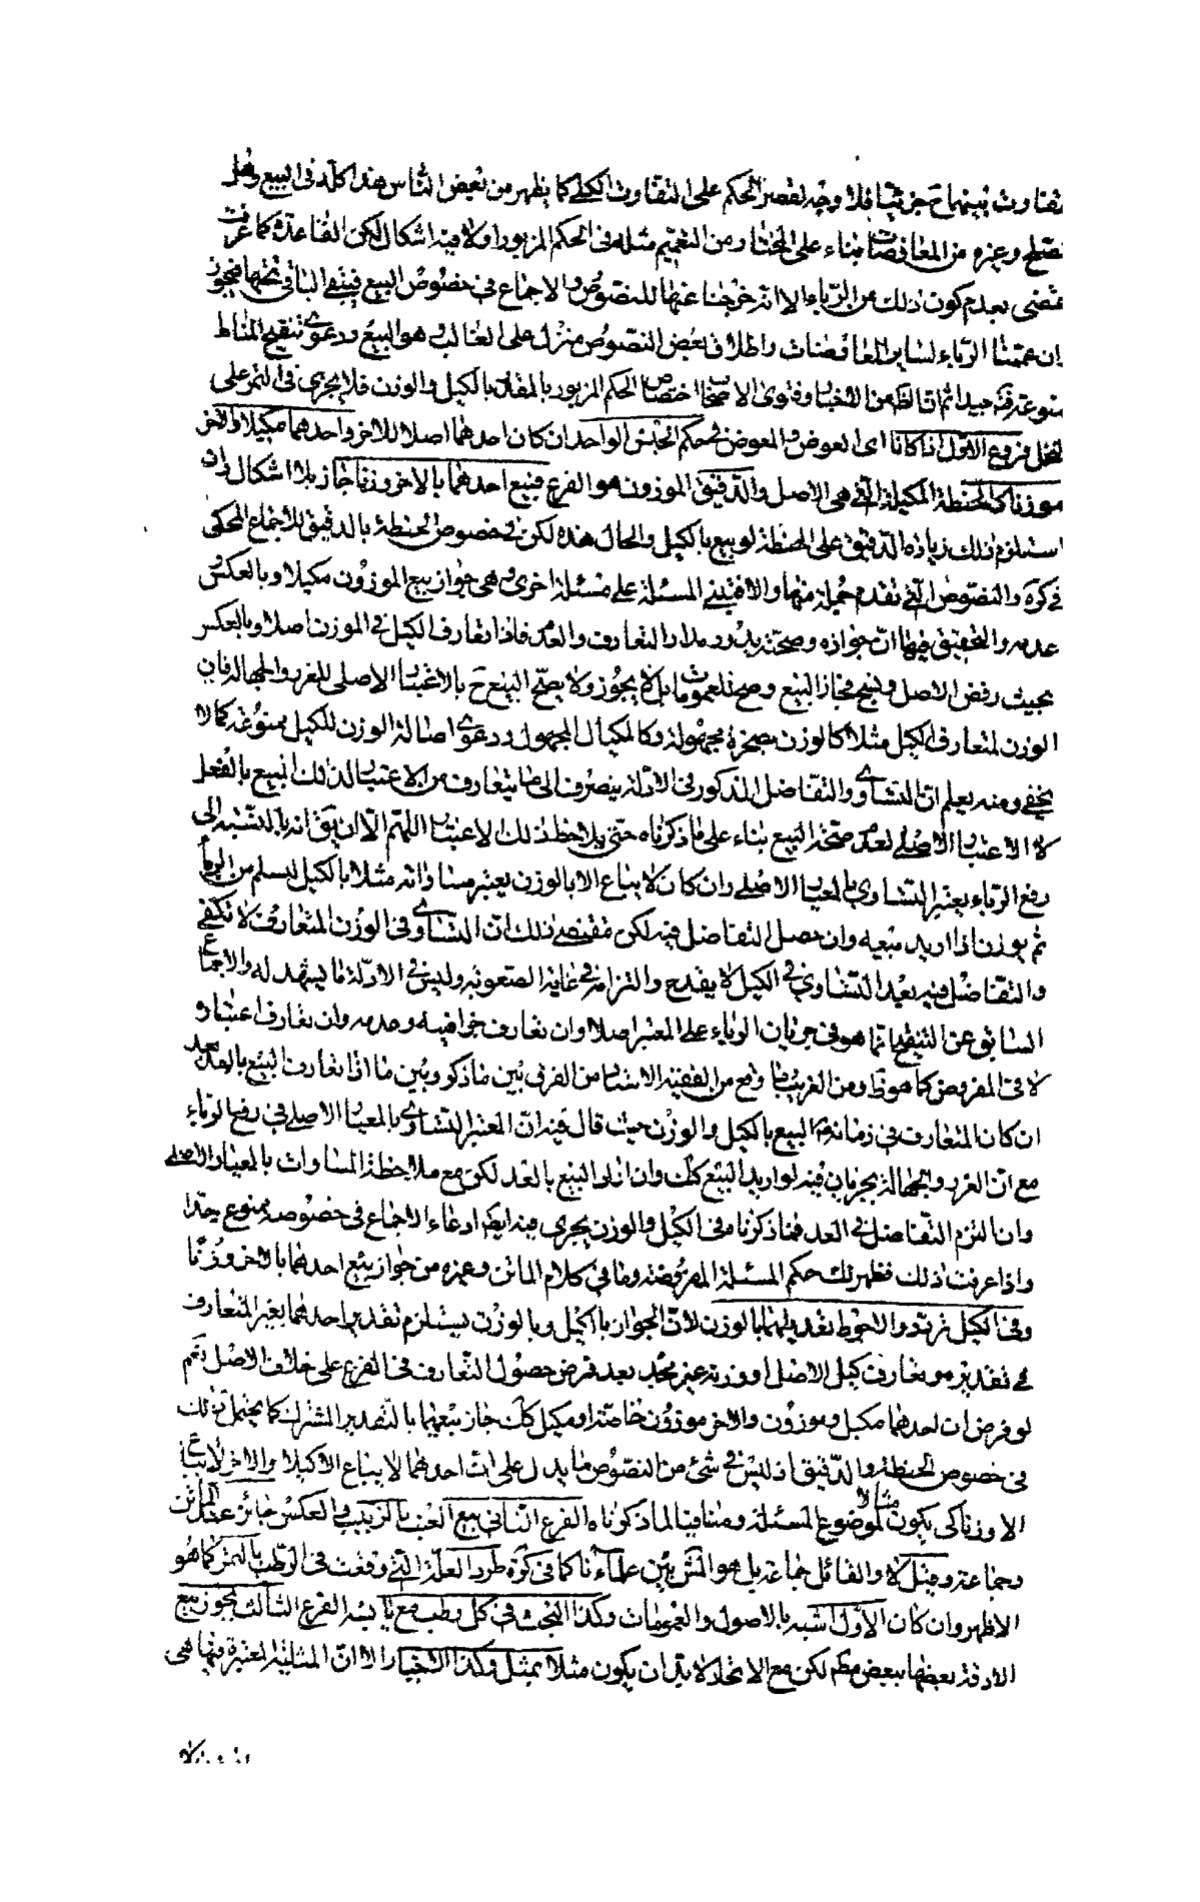 تفاوت بينهما ح جزئيّا فلا وجه لقصر الحكم على التفاوت الكلّي كما يظهر من بعض الناس هذا كلّه في البيع وهل
الصلح وغيره من المعاوضات بناء على المختار من التعميم مثله في الحكم المزبور اولا فيه اشكال لكن القاعدة كما عرفت
تقتضى بعدم كون ذلك من الرباء الا انه خرجنا عنها للنصوص والاجماع في خصوص البيع فيبقى الباقى تحتها فيجوز
ان عممنا الرباء لساير المعاوضات واطلاق بعض النصوص منزل على الغالب وهو البيع ودعوى تنقيح المناط
ممنوعة جيدا ثم ان الظ من الاخبار وفتوى الاصحاب اختصاص الحكم المزبور بالمقدّر بالكيل والوزن فلا يجرى في التمر على
النخل فروع الاول اذا كانا اى العوض والمعوض في حكم الجنس الواحد ان كان احدهما اصلا للاخر واحدهما مكيلا والاخر
موزنا كالحنطة المكيلة التي هي الاصل والدقيق الموزون هو الفرع فبيع احدهما بالاخر وزنا جاز بلا اشكال وان
استلزم ذلك زيادة الدقيق على الحنطة لو بيع بالكيل والحال هذه لكن في خصوص الحنطة بالدقيق للاجماع المحكى
في كره والنصوص التي تقدم جملة منها والا فتبنى المسئلة على مسئلة اخرى وهى جواز بيع الموزون مكيلا وبالعكس و
عدمه والتحقيق فيها انّ جوازه وصحته يدور مدار التعارف والعدم فاذا تعارف الكيل في الموزن اصلا وبالعكس
بحيث رفض الاصل ونسخ جاز البيع وصح للعمومات بل لا يجوز ولا يصح البيع ح بالاعتبار الاصلى للغرر والجهالة فان
الوزن لمتعارف الكيل مثلا كالوزن بصخرة مجهولة وكالمكيال المجهول ودعوى اصالة الوزن للكيل ممنوعة كما لا
يخفى ومنه يعلم ان التساوى والتفاضل المذكور في الادلة ينصرف الى ما يتعارف من الاعتبار لذلك المبيع بالفعل
لا الاعتبار الاصلى لعدم صحة البيع بناء على ما ذكرناه حتى يلاحظ ذلك الاعتبار اللهم الا ان يق انه بالنسبة الى
رفع الرباء يعتبر التساوى بالمعيار الاصلى وان كان لا يباع الا بالوزن يعتبر مساواته مثلا بالكيل ليسلم من الربا
ثم يوزن اذا اريد بيعه وان حصل التفاضل فيه لكن مقتضى ذلك ان التساوى في الوزن المتعارف لا تكفى
والتفاضل فيه بعد التساوى في الكيل لا يقدح والتزامه في غاية الصعوبة وليس في الادلة ما يشهد له والاجماع
السابق عن التنقيح انما هو في جريان الرباء على المعتبر اصلا وان تعارف جزافية وعدمه وان تعارف اعتباره
لا في المفروض كما هو ظ ومن الغريب ما وقع من الفقيه الاستاد من الفرق بين ما ذكر وبين ما اذا تعارف البيع بالعدد بعد
ان كان المتعارف في زمانهم البيع بالكيل والوزن حيث قال فيه انّ المعتبر التساوى بالمعيار الاصلى في رفع الرباء
مع ان الغرر والجهالة يجريان فيه لو اريد البيع كك وان اتى البيع بالعد لكن مع ملاحظة المساوات بالمعيار الاصلى
وان التزم التفاضل في العد فما ذكرنا في الكيل والوزن يجرى فيه ايض ادعاء الاجماع في خصوصه ممنوع جدا
واذا عرفت ذلك فظهر لك حكم المسئلة المفروضة وما في كلام الماتن وغيره من جواز بيع احدهما بالاخر وزنا
وفي الكيل تردد والاحوط تعديلهما بالوزن لان الجواز بالكيل وبالوزن يستلزم تقدير احدهما بغير المتعارف
في تقديره وتعارف كيل الاصل او وزنه غير مجد بعد فرض حصول التعارف في الفرع على خلاف الاصل نعم
لو فرض ان احدهما مكيل وموزون والاخر موزون خاصة او مكيل كك جاز بيعهما بالتقدير المشترك كما يحتمل ذلك
في خصوص الحنطة والدقيق اذ ليس في شئ من النصوص ما يدل على ان احدهما لا يباع الا كيلا والاخر لا يباع
الا وزنا كى يكون مثالا لموضوع المسئلة ومنافيا لما ذكرناه الفرع الثانى بيع العنب بالزبيب والعكس جائز عند الماتن
وجماعة وقيل لا والقائل جماعة بل هو المش بين علمائنا كما في كره طرد العلة التي وقعت في الرطب بالتمر كما هو
الاظهر وان كان الاول اشبه بالاصول والعمومات وكذا البحث في كل رطب مع يابسه الفرع الثالث يجوز بيع
الادقة بعضها ببعض مطم لكن مع الاتحاد لا بد ان يكون مثلا بمثل وكذا الاخباز الا ان المثلية المعتبرة فيها هى